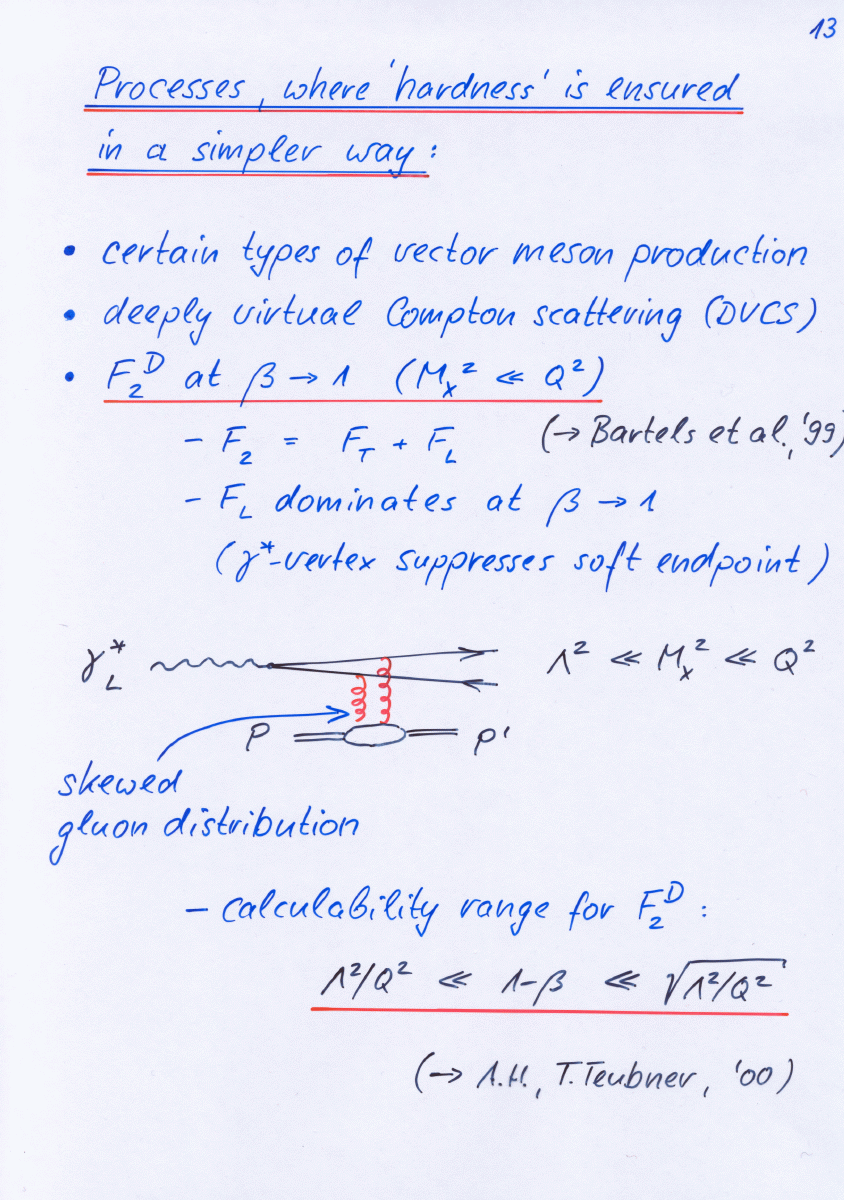 13
Processes, where 'hardness' is ensured
in a simpler way:
• certain types of vector meson production
• deeply virtual Compton scattering (DVCS)
• F₂ᴰ at β → 1 (Mₓ² ≪ Q²)
– F₂ = F_T + F_L (→ Bartels et al., '99)
– F_L dominates at β → 1
(γ*-vertex suppresses soft endpoint)
γ*_L Λ² ≪ Mₓ² ≪ Q²
P P'
skewed
gluon distribution
– calculability range for F₂ᴰ :
Λ²/Q² ≪ 1-β ≪ √(Λ²/Q²)
(→ A.H., T. Teubner, '00)